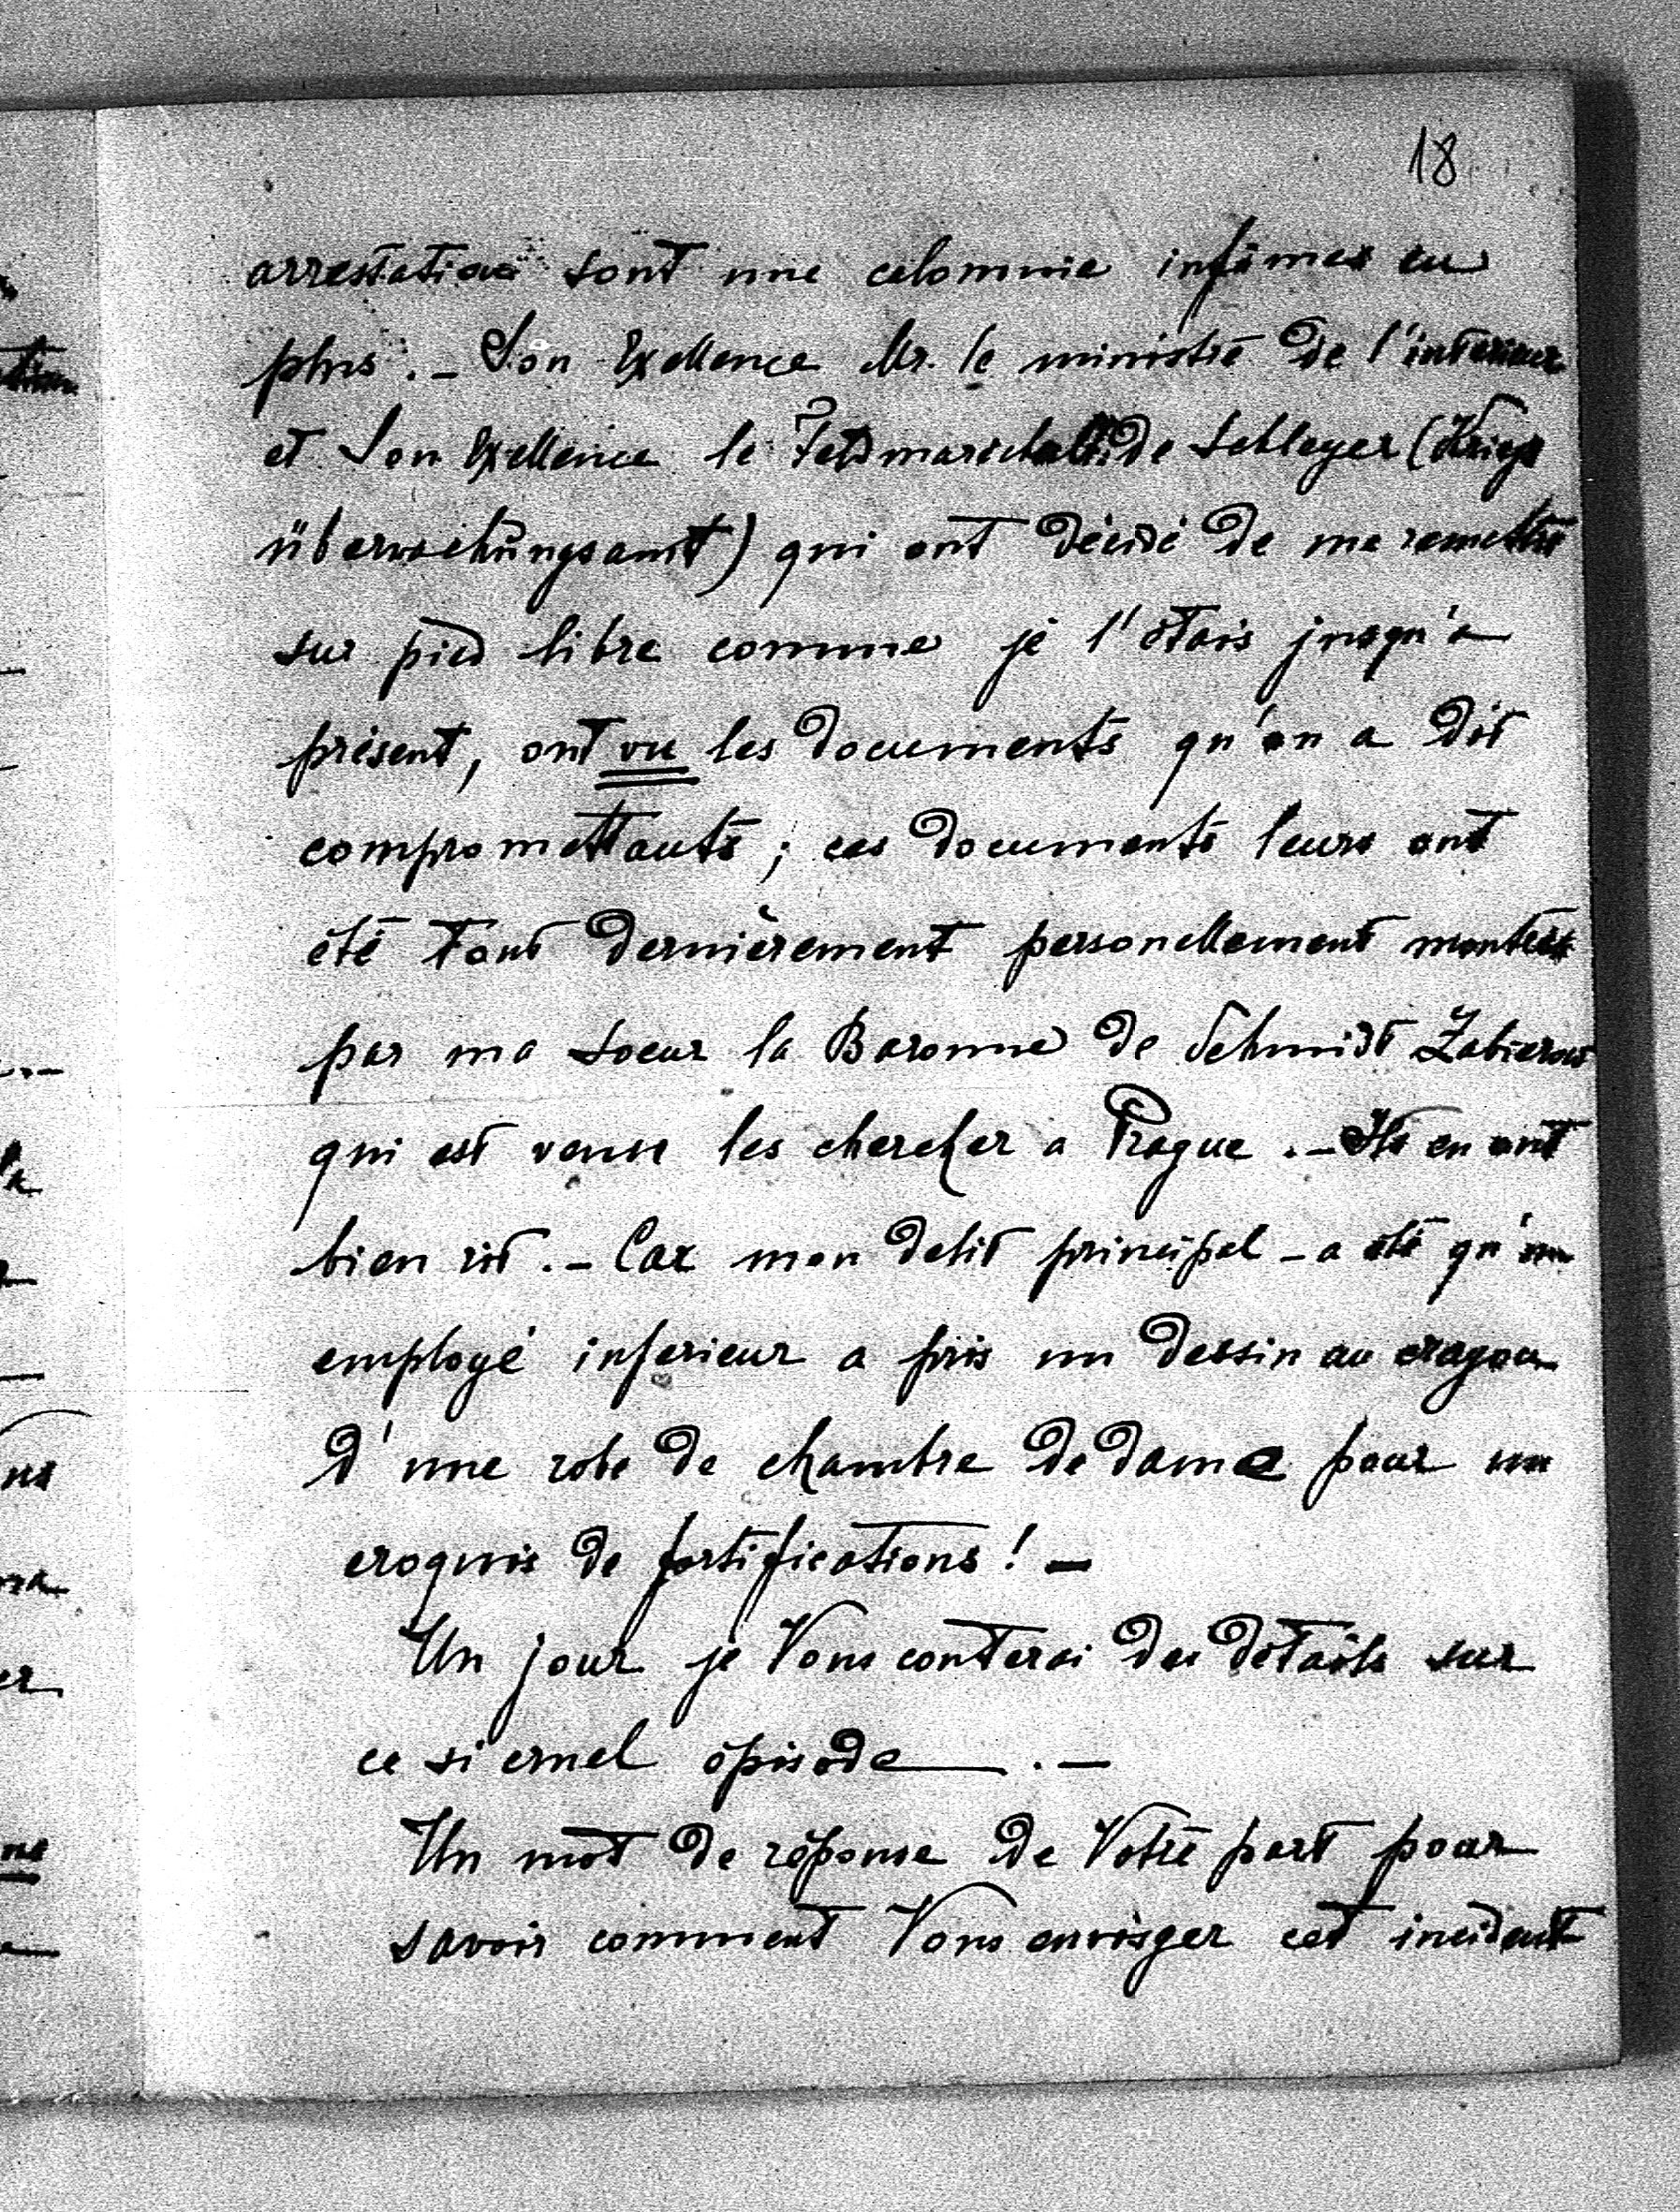 18
arrestations sont une calomnie infâmes en
plus. – Son Exellence Mr. le ministre de l'interieur
et Son Exellence le Feldmarechallt. de Schleyer (Kriegs
überwachungsamt) qui ont décidé de me remettre
sur pied libre comme je l'étais jusqu'a
présent, ont vu les documents qu'on a dit
compromettants ; ces documents leurs ont
été tout dernièrement personellement montrés
par ma soeur la Baronne de Schmidt Zabierow
qui est venue les chercher a Prague. – Ils en ont
bien rit. – Car mon delit principal – a été qu'un
employé inferieur a pris un dessin au crayon
d'une robe de chambre de dame pour un
croquis de fortifications ! –
Un jour je Vous conterai des détails sur
ce si cruel épisode . –
Un mot de réponse de Votre part pour
savoir comment Vous envisger cet incident